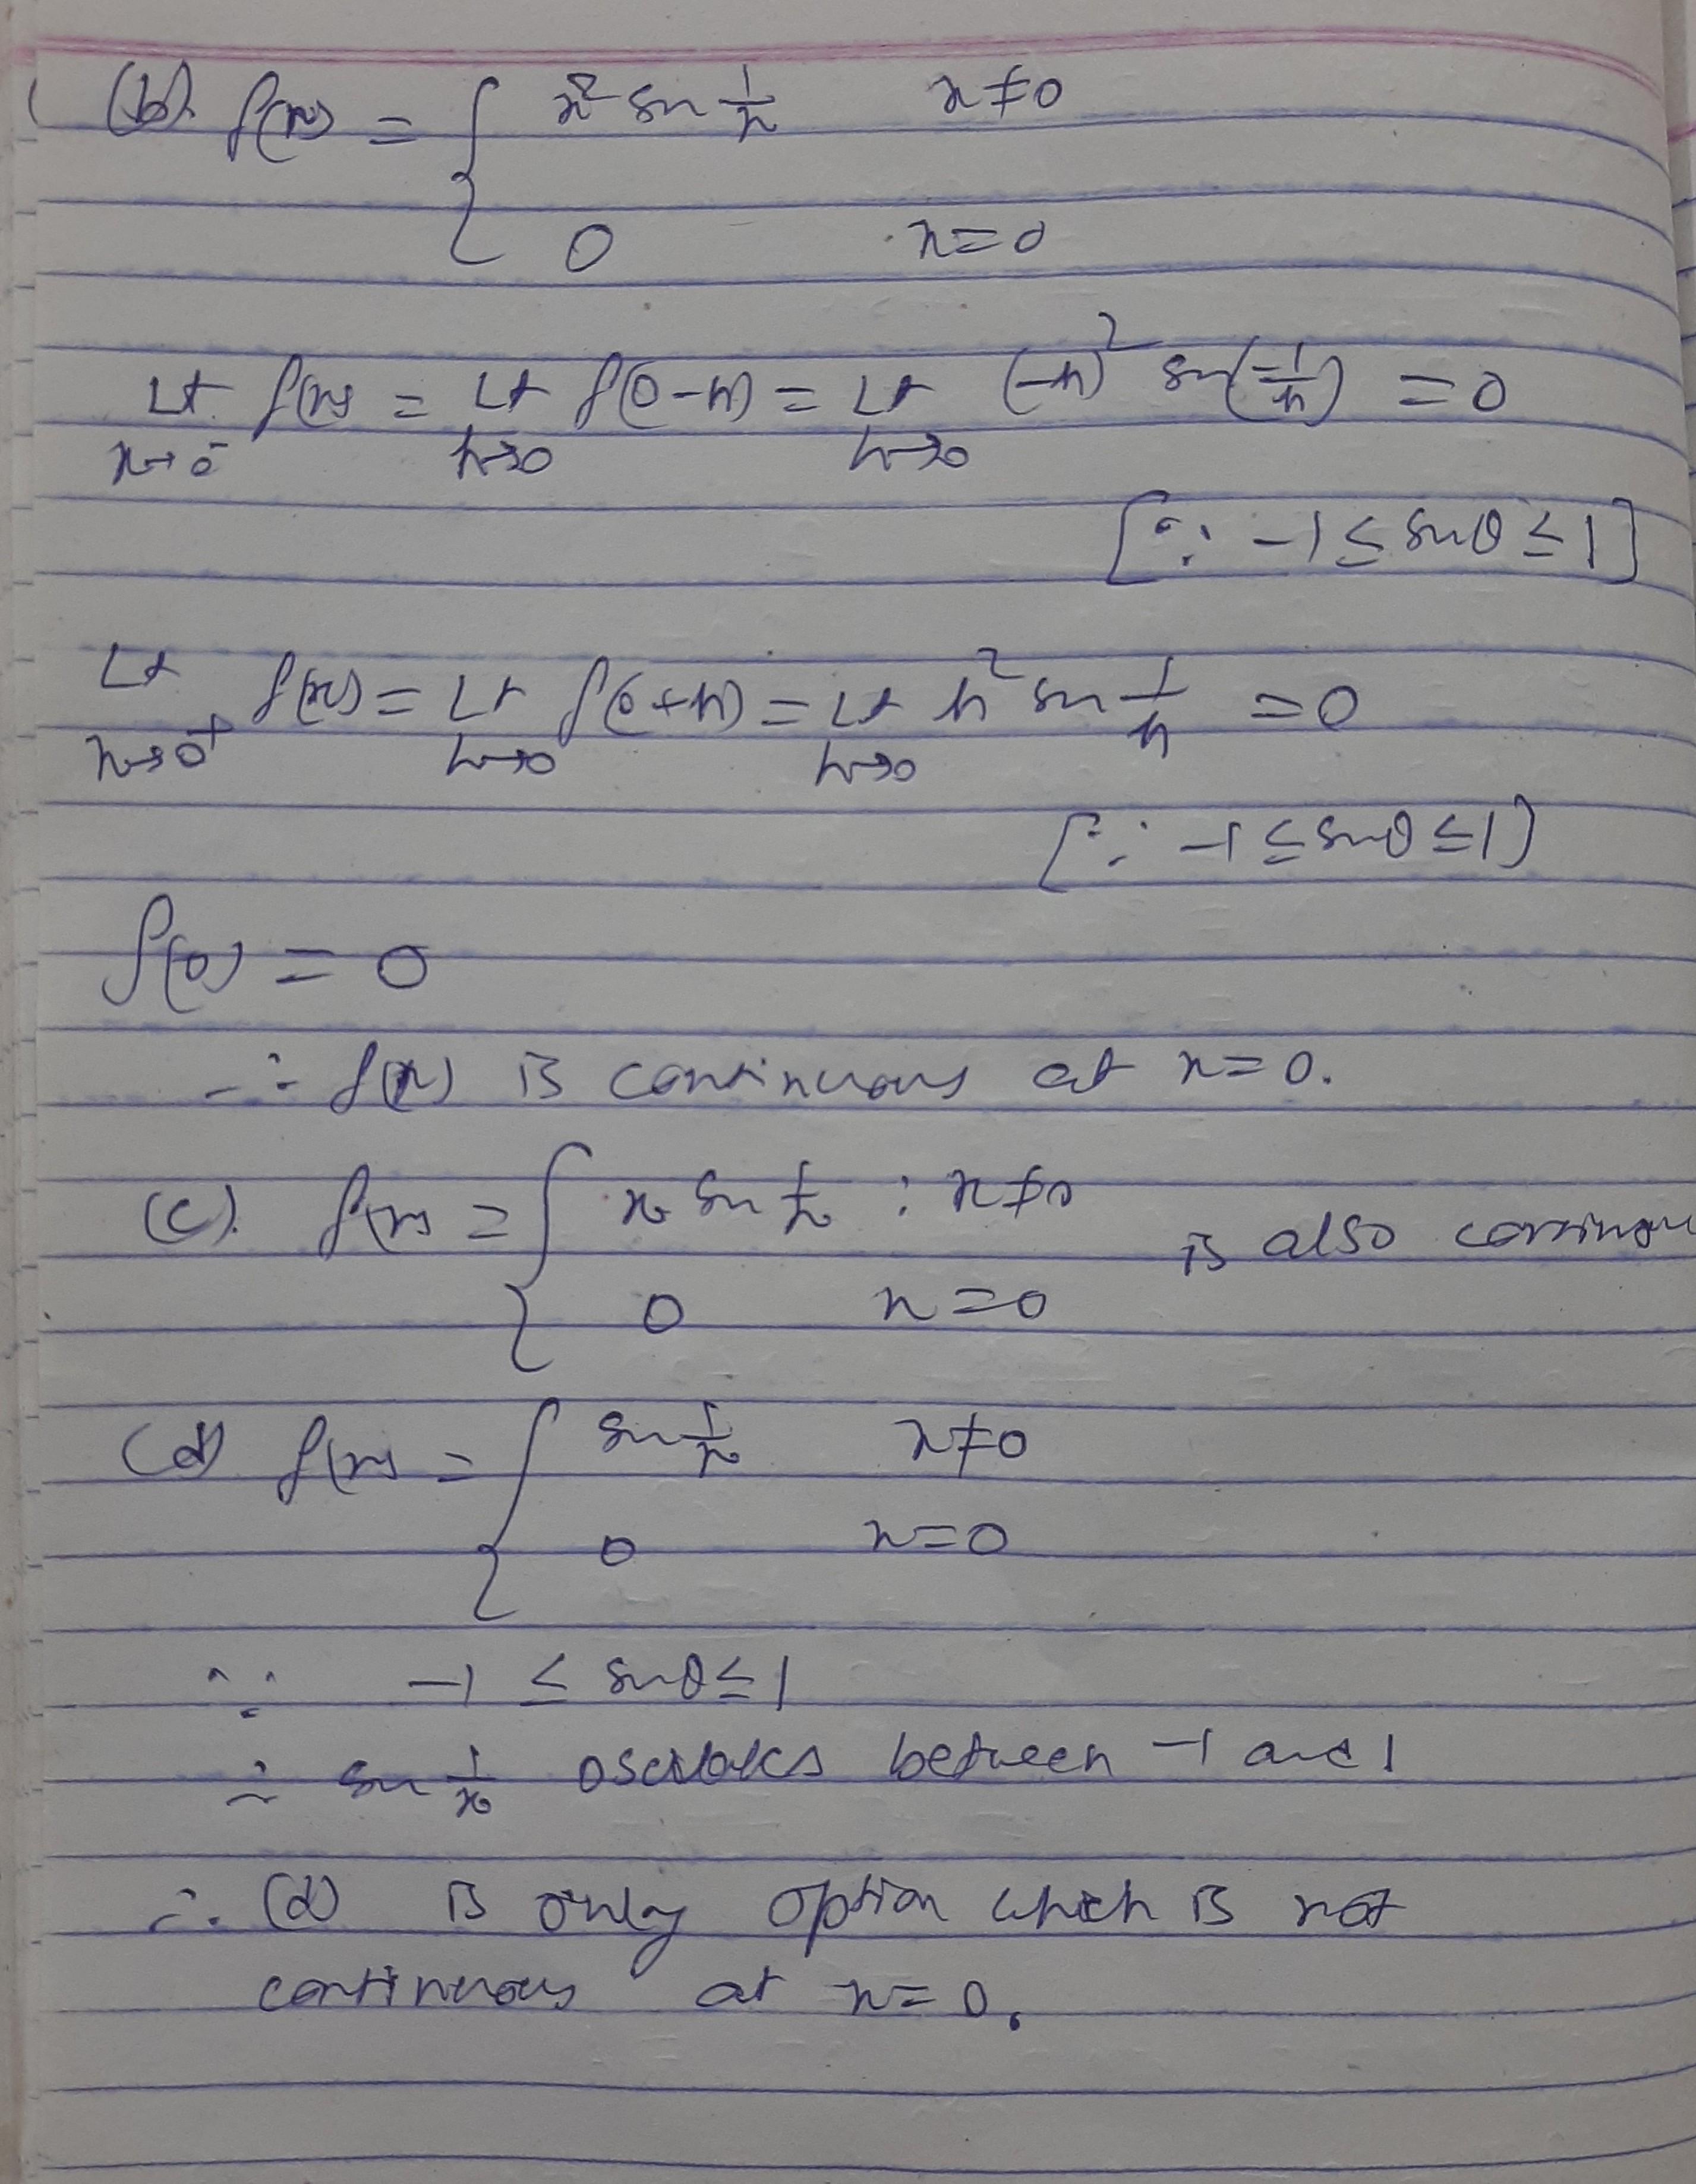 (b). f(x) = { x² sin 1/x x≠0
0 x=0
Lt f(x) = Lt f(0-h) = Lt (-h)² sin(-1/h) = 0
x→0⁻ h→0 h→0
[∵ -1 ≤ sinθ ≤ 1]
Lt f(x) = Lt f(0+h) = Lt h² sin 1/h = 0
x→0⁺ h→0 h→0
[∵ -1 ≤ sinθ ≤ 1]
f(0) = 0
∴ f(x) is continuous at x=0.
(c). f(x) = { x sin 1/x : x≠0
is also continuou
0 x=0
(d) f(x) = { sin 1/x x≠0
0 x=0
∵ -1 ≤ sinθ ≤ 1
∴ sin 1/x oscillates between -1 and 1
∴ (d) is only option which is not
continuous at x=0.